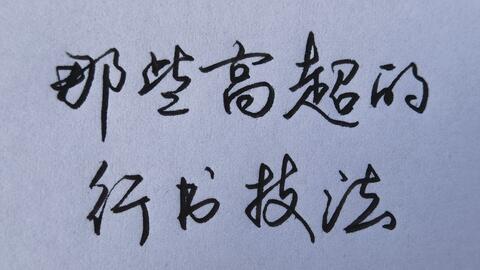 那些高超的
行书技法